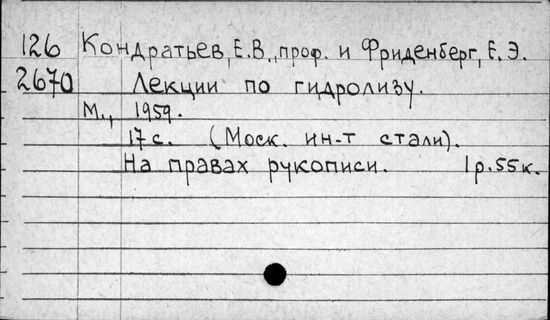 126 Кондратьев, Е.В., проф. и Фриденберг, Е.Э.
2670 Лекции по гидролизу.
М., 1959.
17 с. (Моск. ин-т стали).
На правах рукописи. 1 р. 55 к.